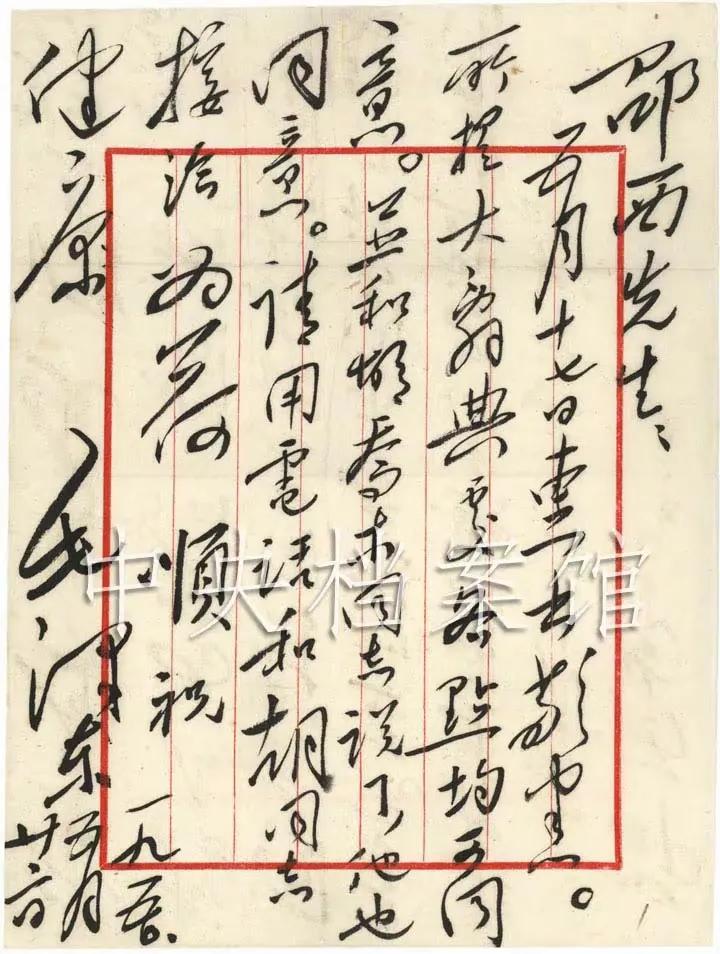 邵西先生：
五月十七日惠书敬悉。
所提大辭典各點均可同
意。並和胡喬木同志说了，他也
同意。请用電话和胡同志
接洽为荷 順祝
健康
毛泽东
一九五〇、
五月
廿二日
中央档案馆